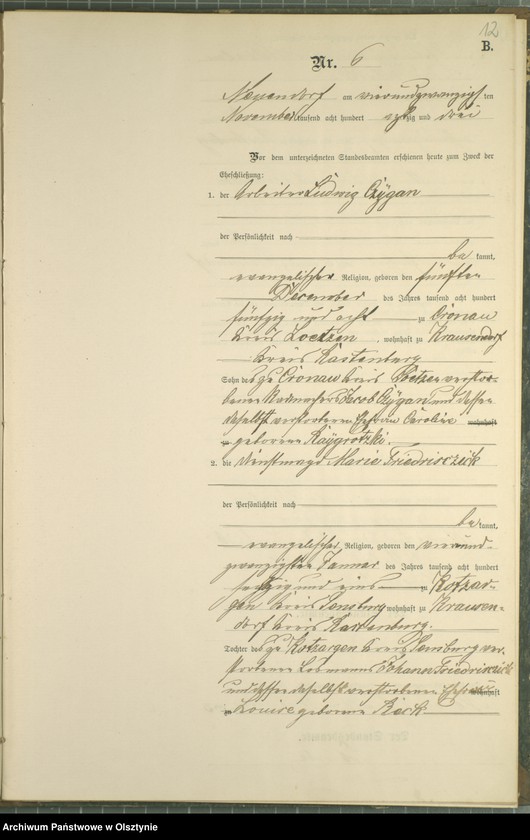 12
B.
Nr. 6
Neuendorf am vierundzwanzigsten
November tausend acht hundert achtzig und drei
Vor dem unterzeichneten Standesbeamten erschienen heute zum Zweck der
Eheschließung:
1. der Arbeiter Ludwig Czÿgan
der Persönlichkeit nach
be kannt,
evangelischer Religion, geboren den fünften
December des Jahres tausend acht hundert
fünfzig und acht zu Cronau
Kreis Loetzen, wohnhaft zu Krausendorf
Kreis Rastenburg
Sohn des zu Cronau Kreis Loetzen verstor-
benen Jacob Czÿgan und dessen
daselbst verstorbenen Ehefrau Caroline wohnhaft
zu geborene
2. die Dienstmagd Marie Friedriszick
der Persönlichkeit nach
be kannt,
evangelischer Religion, geboren den vierund-
zwanzigsten Januar des Jahres tausend acht hundert
sechszig und eins zu Kotzar-
gen Kreis Sensburg wohnhaft zu Krausen-
dorf Kreis Rastenburg.
Tochter des zu Kotzargen Kreis Sensburg ver-
storbenen Losmanns Johann Friedriszick
und dessen daselbst verstorbenen Ehefrau wohnhaft
zu Louise geborene
Archiwum Państwowe w Olsztynie